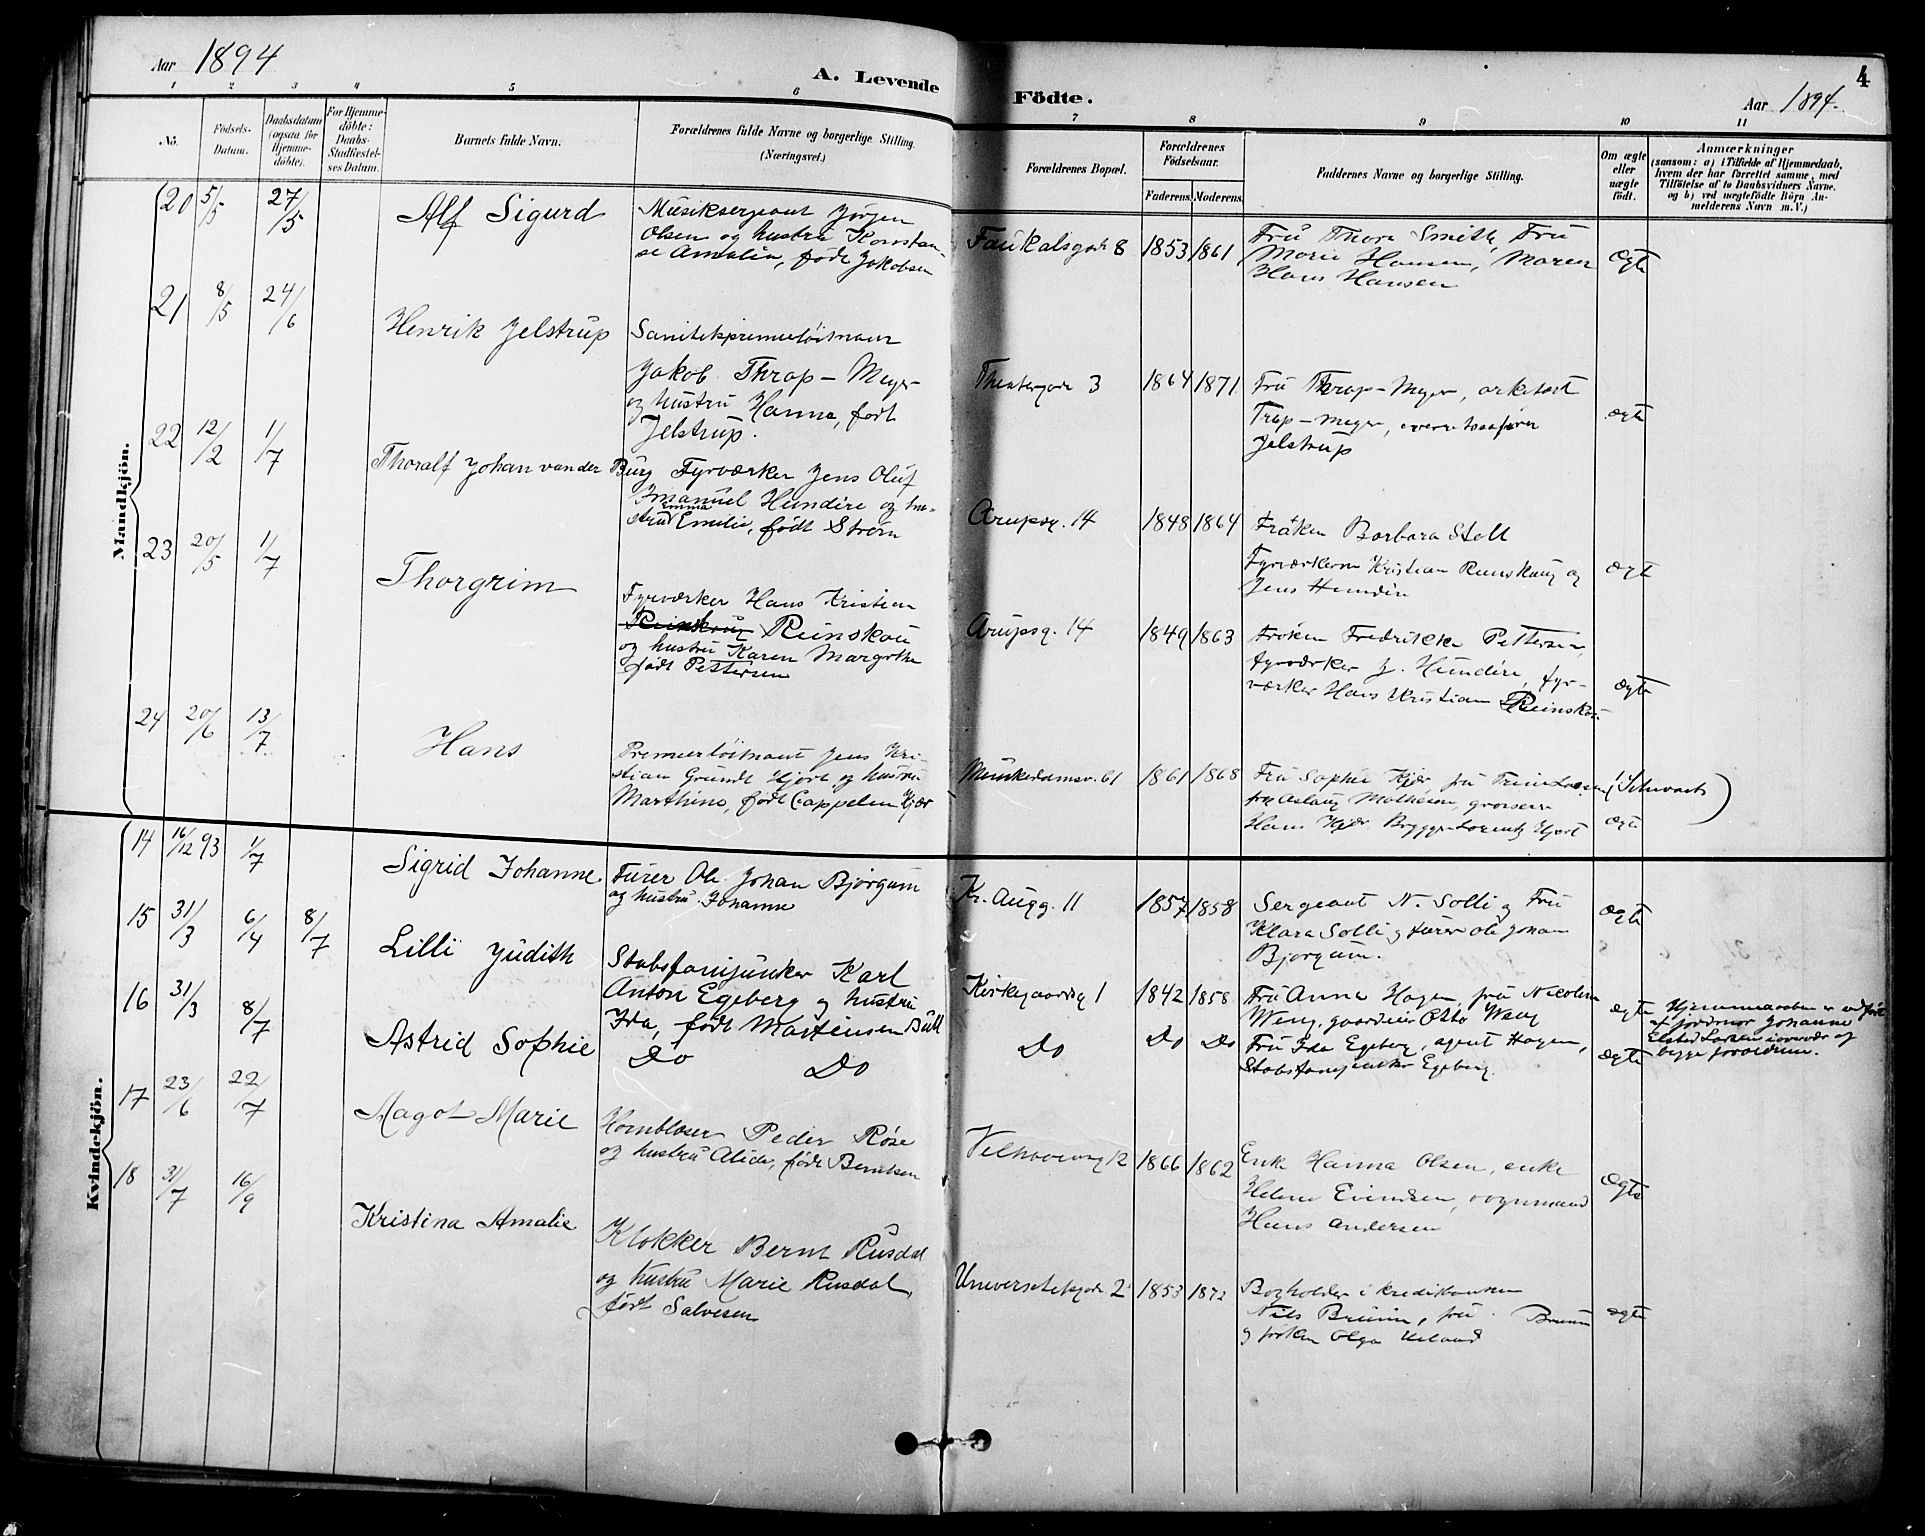 Aar 1894
A. Levende
1 2 3 4 5 6
No.
Födsels-
Datum.
Daabsdatum
(ogsaa for
Hjemme-
döbte).
For Hjemme-
döbte:
Daabs-
Stadfæstel-
ses Datum.
Barnets fulde Navn.
Forældrenes fulde Navne og borgerlige Stilling.
(Næringsvei.)
Mandkjön.
20 5/5 27/5 Alf Sigurd
Musiksergeant Jørgen
Olsen og hustru Konstan-
se Amalia, født Jakobsen
21 8/5 24/6 Henrik Jelstrup
Jakob Thrap-Meyer
og hustru Hanna, født
Jelstrup.
22 12/2 1/7 Thoralf Johan vander Burg
Fyrværker Jens Oluf
Imanuel Hundire og hu-
stru Emma Emilie, født Strøm
23 20/5 1/7 Thorgrim
Fyrværker Hans Kristian
Reinskou
og hustru Karen Margrthe
født Pettersen
24 20/6 13/7 Hans
Premierløitnant Jens Kri-
stian Grundt Hjort og hustru
Marthine, født Cappelen Kjær
Kvindekjön.
14 16/12 93 1/7 Sigrid Johanne
Furer Ole Johan Bjørgum
og hustru Johanne
15 31/3 6/4 8/7 Lilli Judith
Stabsfanejunker Karl
Anton Egeberg og hustru
Ida, født Martinsen Bull
16 31/3 8/7 Astrid Sophie
Do Do
17 23/6 22/7 Aagot Marie
Hornblæser Peder Røse
og hustru Alide, født Berntsen
18 31/7 16/9 Kristina Amalie
Klokker Bernt Rusdal
og hustru Marie Rusdal,
født Salvesen
4
Födte.
Aar 1894.
7 8 9 10 11
Forældrenes Bopæl.
Forældrenes
Födselsaar.
Faderens. Moderens.
Faddernes Navne og borgerlige Stilling.
Om ægte
eller
uægte
födt.
Anmærkninger
(saasom: a) i Tilfælde af Hjemmedaab,
hvem der har forrettet samme, med
Tilföielse af to Daabsvidners Navne,
og b) ved uægtefödte Börn An-
melderens Navn m.V.)
8 1853 1861
Fru Thora Smith, Fru
Marie Hansen, Maren
Hans Hansen
Ægte
3 1864 1871
Fru Thrap-Meyer, arkitekt
Trap-Meyer,
Jelstrup
ægte
Arupsg. 14 1848 1864
Frøken Barbara Stoll
Fyrværkerne Kristian Reinskoug og
Jens Hundire
ægte
Arupsg. 14 1849 1863
Frøken Fredrikke Pettersen,
fyrværker J. Hundire, fyr-
værker Hans Kristian Reinskou
ægte
Munkedamsv. 61 1861 1868
Fru Sophie Kjær fru
fru Aslaug Mathesen, grosserer
Hans Kjær Lorentz Hjort
ægte
Kr. Augg. 11 1857 1858
Sergeant N. Solli og Fru
Klara Solli og furer Ole Johan
Bjørgum.
ægte
Kirkegaardsg 1 1842 1858
Fru Anna Hagen, fru Nicoline
Weng, gaardeier Otto Weng
ægte
Hjemmedaaben er udført
af jordmor Johanne
Larsen i overvær af
begge forældrene.
Do Do Do
Fru Ida Egeberg, agent Hagen,
Stabsfanejunker Egeberg.
ægte
12 1866 1862
Enke Hanna Olsen, enke
Helene Evensen, vognmand
Hans Andersen
Ægte
Universitetsgade 2 1853 1872
Bogholder i kreditbanken
Nils Bruun, fru Bruun
og frøken Olga Ueland
ægte